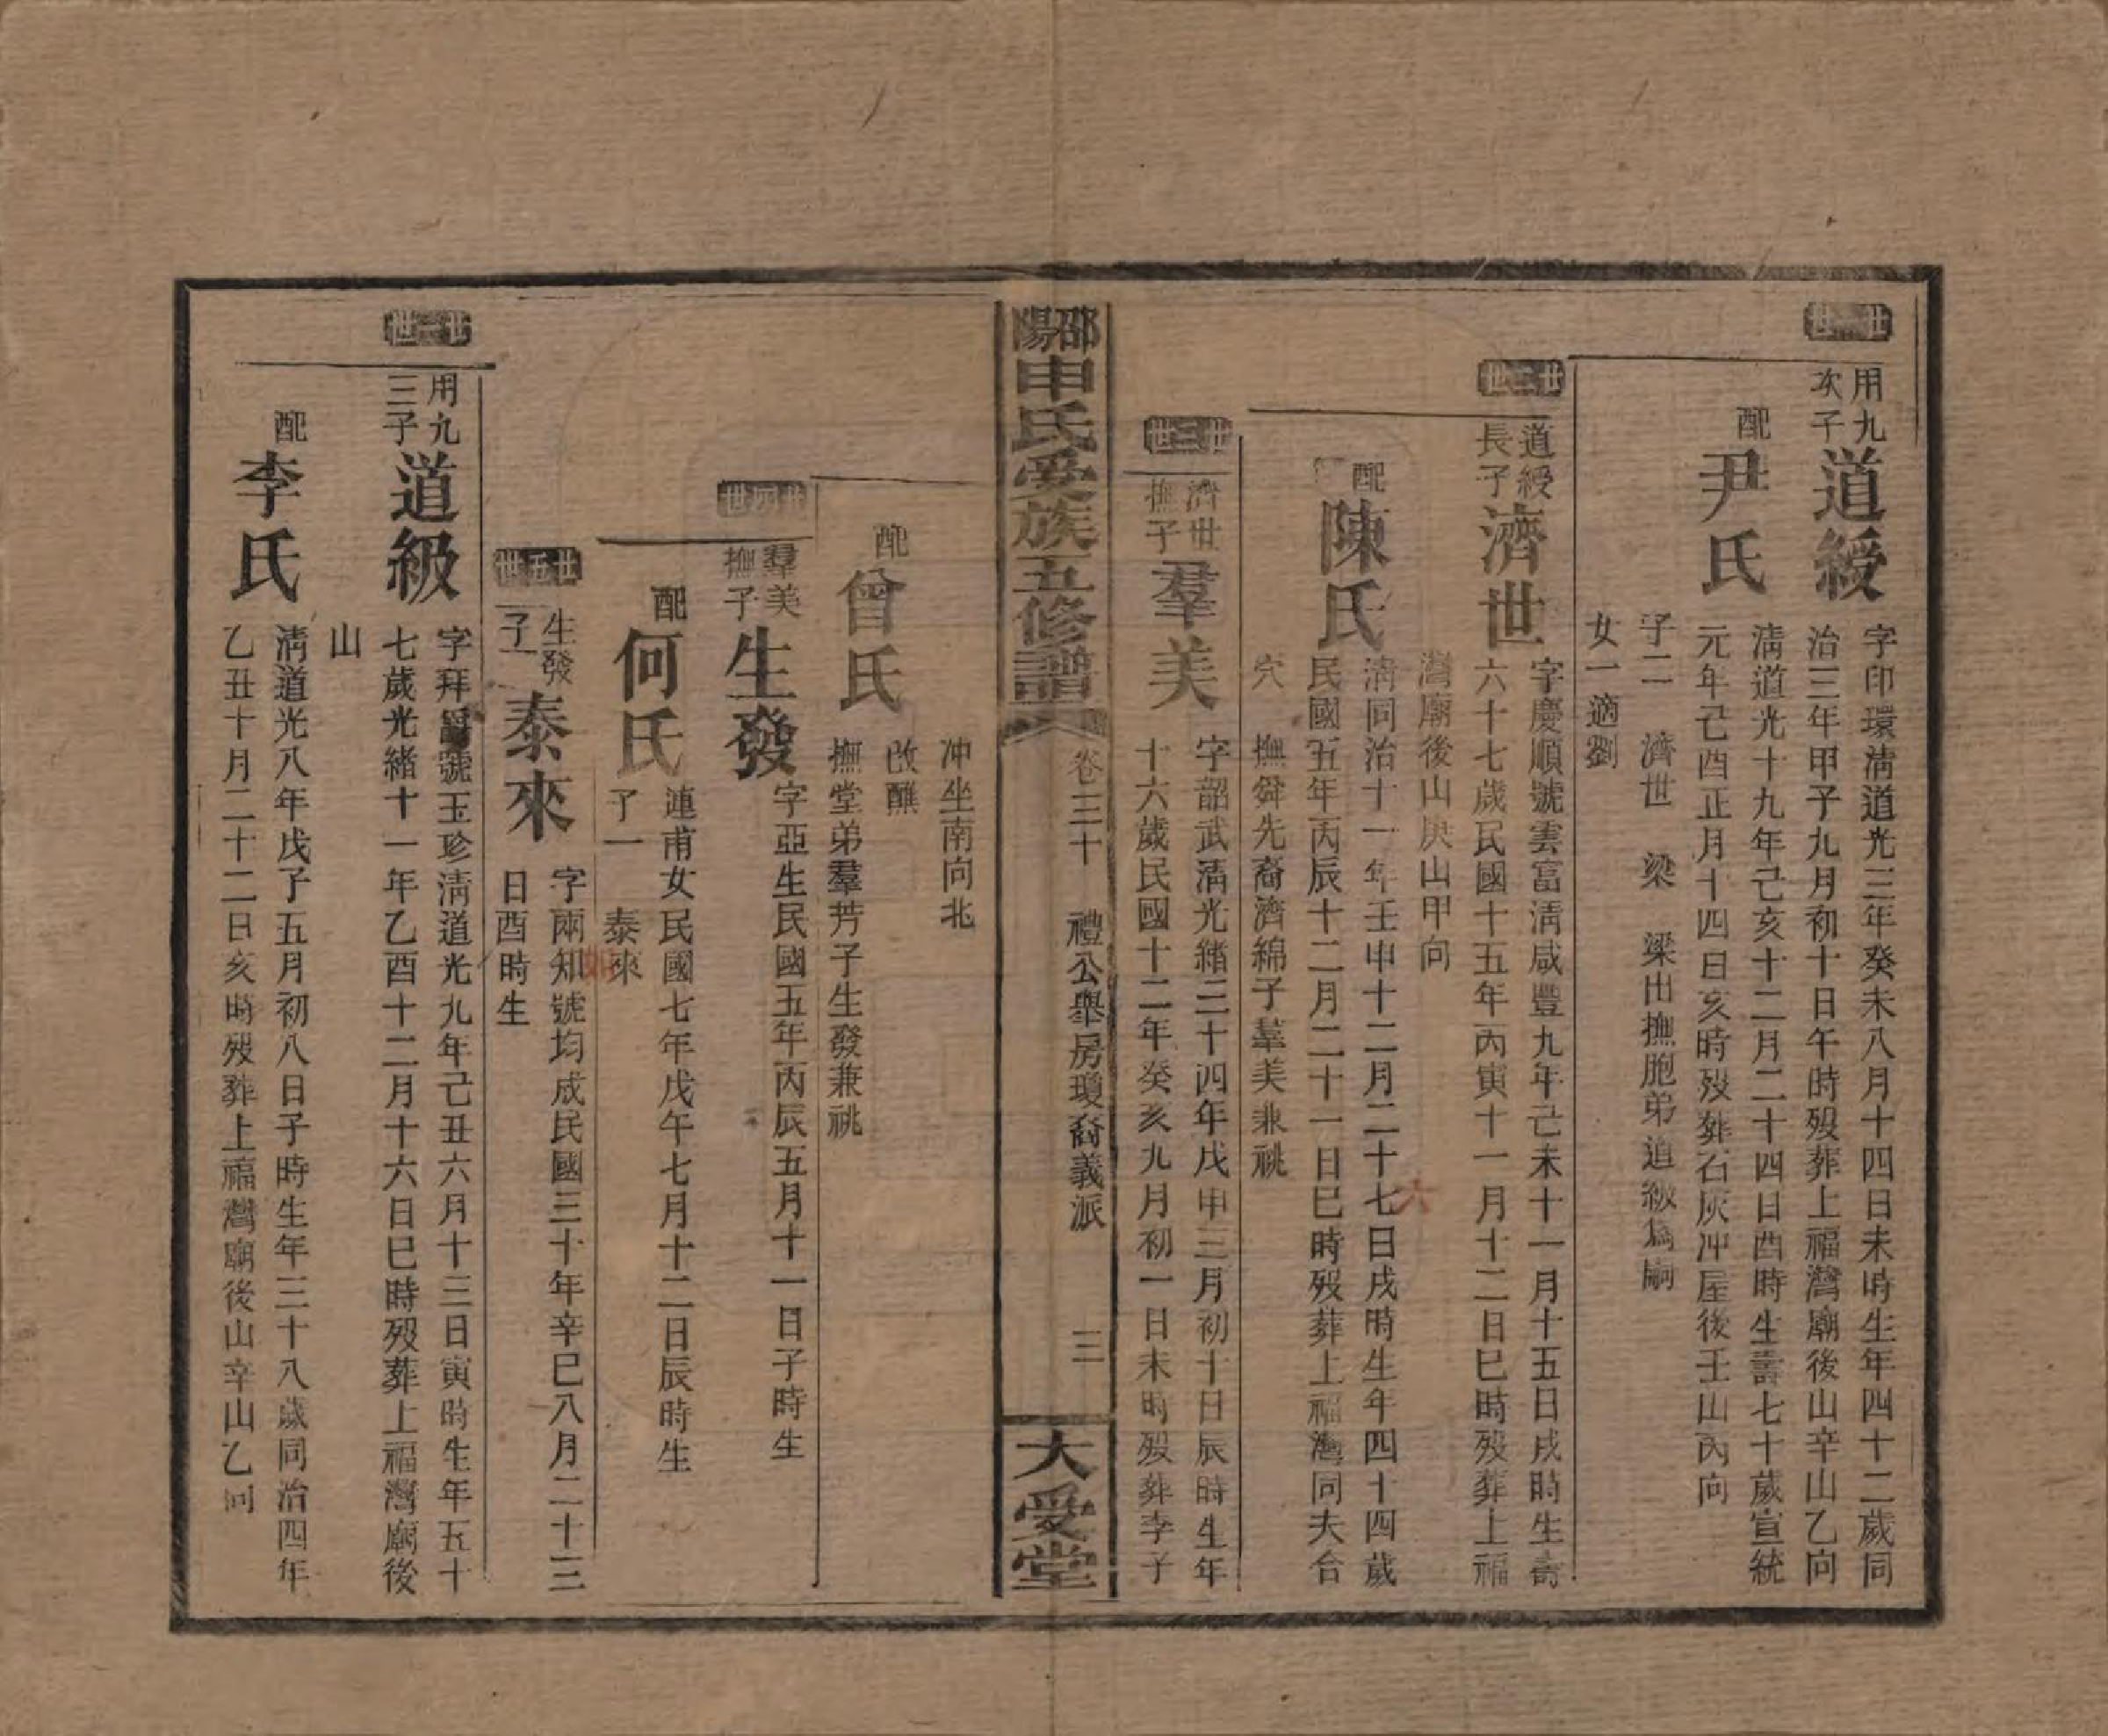 用九
次子
道綬
字印環清道光三年癸未八月十四日未時生年四十二歲同
治三年甲子九月初十日午時歿葬上福灣廟後山辛山乙向
配
尹氏
清道光十九年己亥十二月二十四日酉時生壽七十歲宣統
元年己酉正月十四日亥時歿葬石灰冲屋後壬山丙向
子二 濟世 梁 梁出撫胞弟道級爲嗣
女一適劉
廿三世
道綬
長子
濟世
字慶順號雲富清咸豐九年己未十一月十五日戌時生壽
六十七歲民國十五年丙寅十一月十二日巳時歿葬上福
灣廟後山庚山甲向
配
陳氏
清同治十一年壬申十二月二十七日戌時生年四十四歲
民國五年丙辰十二月二十一日巳時歿葬上福灣同夫合
穴 撫舜先裔濟綿子羣美兼祧
濟世
撫子
羣美
字韶武清光緒三十四年戊申三月初十日辰時生年
十六歲民國十二年癸亥九月初一日未時歿葬李子
邵陽申氏受族五修譜
卷三十 禮公舉房瓊裔義派 三
大受堂
冲坐南向北
配
曾氏
改醮
撫堂弟羣芳子生發兼祧
廿四世
羣美
撫子
生發
字亞生民國五年丙辰五月十一日子時生
配
何氏
連甫女民國七年戊午七月十二日辰時生
子一 泰來
廿五世
生發
子一
泰來
字兩知號均成民國三十年辛巳八月二十三
日酉時生
廿二世
用九
三子
道級
字拜爵號玉珍清道光九年己丑六月十三日寅時生年五十
七歲光緒十一年乙酉十二月十六日巳時歿葬上福灣廟後
山
配
李氏
清道光八年戊子五月初八日子時生年三十八歲同治四年
乙丑十月二十二日亥時歿葬上福灣廟後山辛山乙向